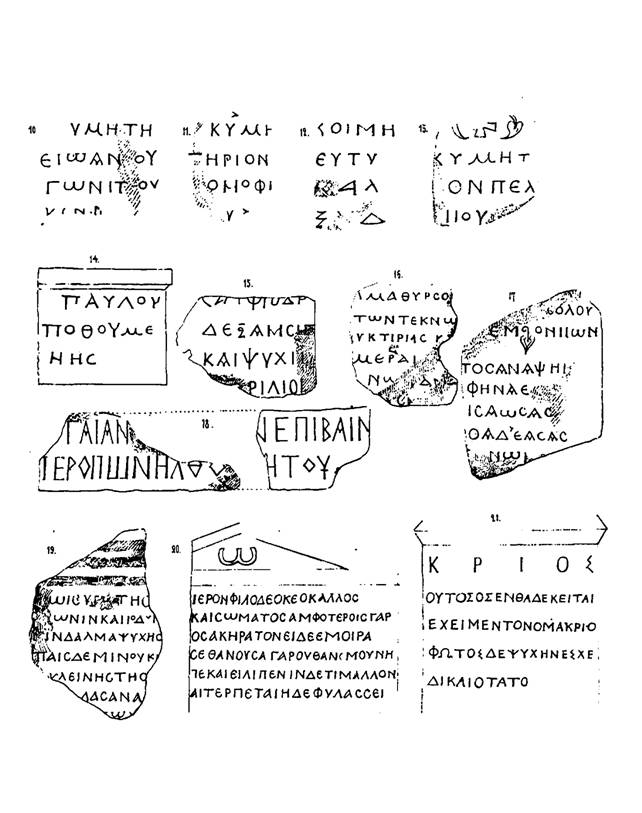 10
ΥΜΗΤΗ
ΕΙΩΑΝΟΥ
ΓΩΝΙΤΟΥ
11.
ΚΥΜΗ
ΤΗΡΙΟΝ
ΟΝΟΦΙ
12.
ϹΟΙΜΗ
ΕΥΤΥ
13.
ΚΥΜΗΤ
ΟΝΠΕΛ
ΙΙΟΥ
14.
ΠΑΥΛΟΥ
ΠΟΘΟΥΜΕ
ΗΗϹ
15.
ΔΕΞΑΜϹ
ΚΑΙΨΥΧΙ
ΡΙΛΙΟ
16.
ΙΜΑΘΥΡϹΟ
ΤΩΝΤΕΚΝΩ
ΥΚΤΙΡΙΑϹ
ΜΕΡΑΙ
17
ϬΟΛΟΥ
ΕΜΦΟΝΙΙΩΝ
ΤΟϹΑΝΑΨΗΙ
ΦΗΝΑΕ
ΙϹΑΩϹΑϹ
ΟΑΔΈΑϹΑϹ
ΝΩΙ
18.
ΓΑΙΑΝ
ΙΕΠΙΒΑΙΝ
ΙΕΡΟΠΩΝΗΛΘ
ΗΤΟΥ
19.
ΩΙϹΥΡΙΤΗϹ
ΙΩΝΙΝΚΑΙΙΟΔΥ
ΙΝΔΑΛΜΑΨΥΧΗϹ
ΠΑΙϹΔΕΜΙΝΟΥΚ
ΥΛΕΙΝΗϹΤΗϹ
ΛΔϹΑΝΑ
20.
Ω
ΙΕΡΟΝΦΙΛΟΔΕΟΚΕΟΚΑΛΛΟϹ
ΚΑΙϹΩΜΑΤΟϹΑΜΦΟΤΕΡΟΙϹΓΑΡ
ΟϹΑΚΗΡΑΤΟΝΕΙΔΕΕΜΟΙΡΑ
ϹΕΘΑΝΟΥϹΑΓΑΡΟΥΘΑΝϹΜΟΥΝΗ
ΠΕΚΑΙΕΙΛΙΠΕΝΙΝΔΕΤΙΜΑΛΛΟΝ
ΑΙΤΕΡΠΕΤΑΙΗΔΕΦΥΛΑϹϹΕΙ
21.
ΚΡΙΟΣ
ΟΥΤΟΣΟΣΕΝΘΑΔΕΚΕΙΤΑΙ
ΕΧΕΙΜΕΝΤΟΝΟΜΑΚΡΙΟ
ΦΩΤΟΣΔΕΨΥΧΗΝΕΣΧΕ
ΔΙΚΑΙΟΤΑΤΟ